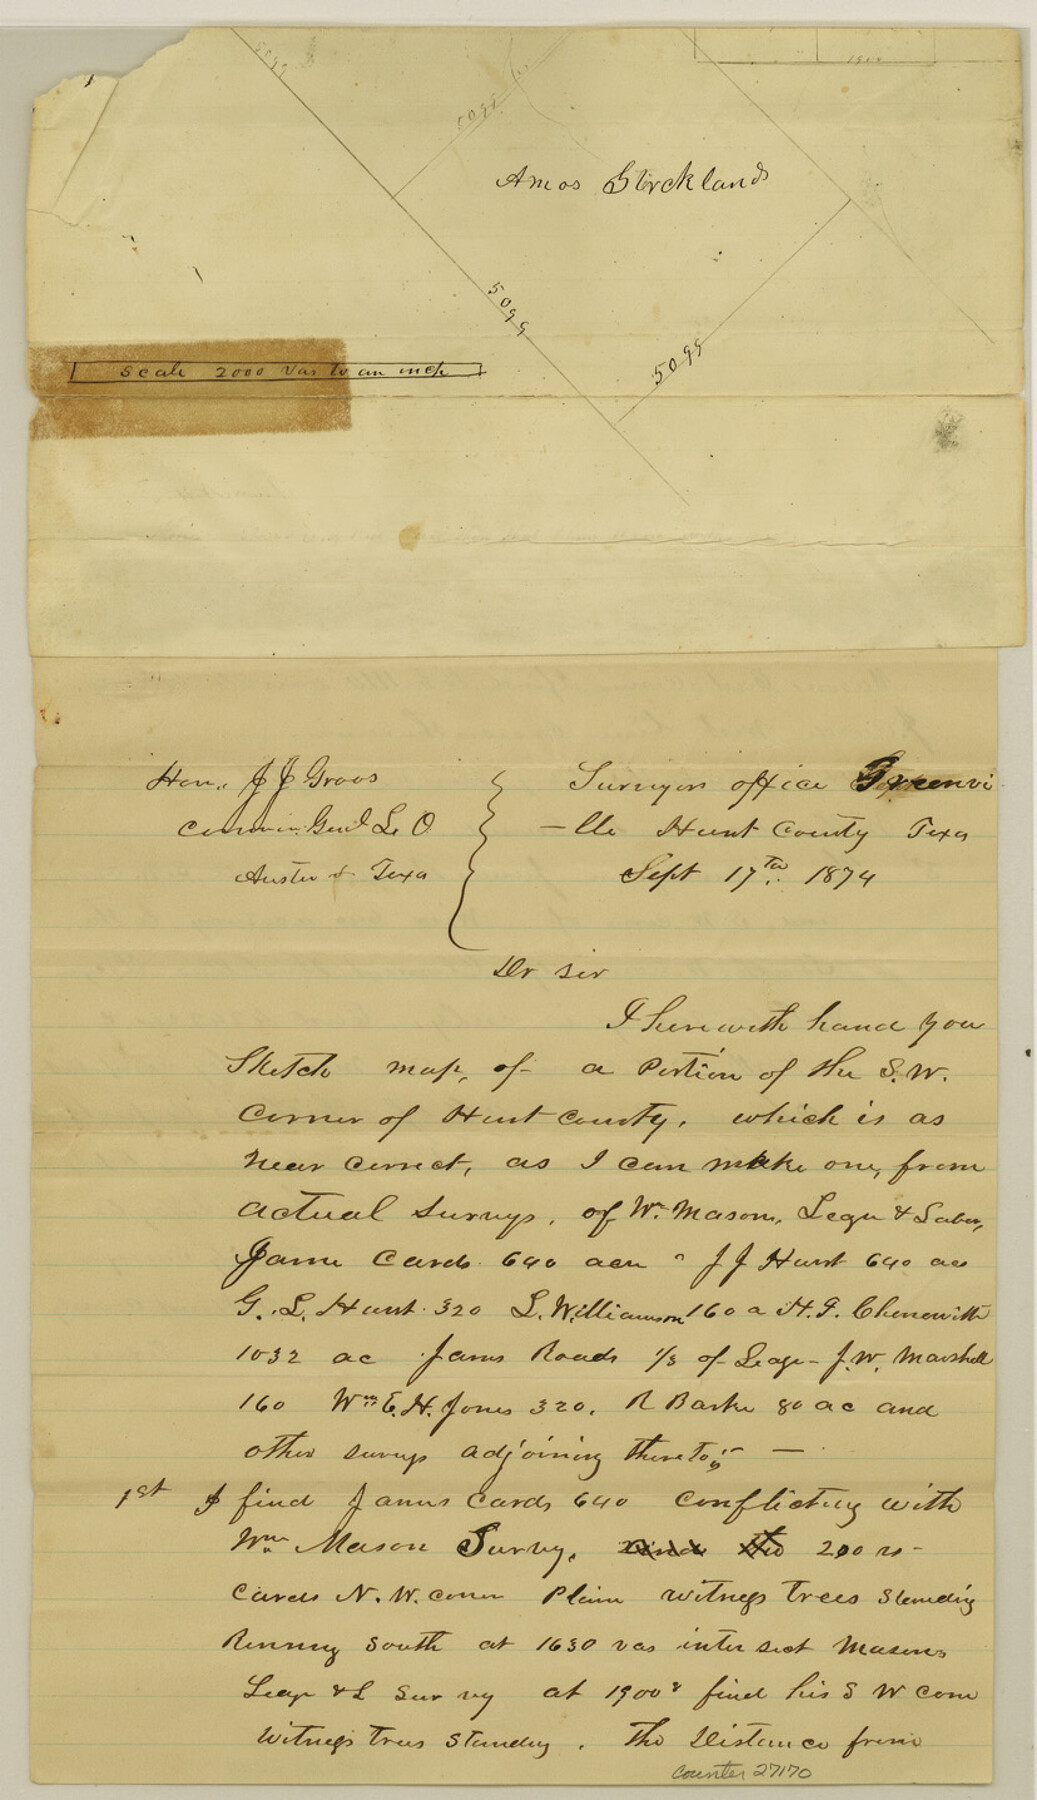 5099
5099
1900
Amos Stricklands
5099
5099
Scale 2000 Vas to an inch
Hon,, J J Groos
Surveyors office Greenvi
Commr. Genl L. O
-lle Hunt County Texa
Austin Texa
Sept 17th. 1874
Dr sir
I herewith hand you
Sketch map, of a Portion of the S.W.
Corner of Hunt County, which is as
near correct, as I can make one, from
actual surveys, of Wm. Mason, Legu & Labor,
James Cards 640 acre J J Hunt 640 ac
G. L. Hunt 320 L. Williamson 160 a H. G. Chenowith
1032 ac James Roads 1/3 of Leage - J. W. Marshell
160 Wm E. H. Jones 320. R Barke 80 ac and
other surveys adjoining thereto -
1st I find James Cards 640 Conflicting with
Wm. Mason Survey, and the 200 vs -
Cards N. W. corner Plain witness trees standing
Running south at 1630 vas intersect Masons
Leage & L Survey at 1900 find his S W corn
witness trees standing. The Distance from
Counter 27170